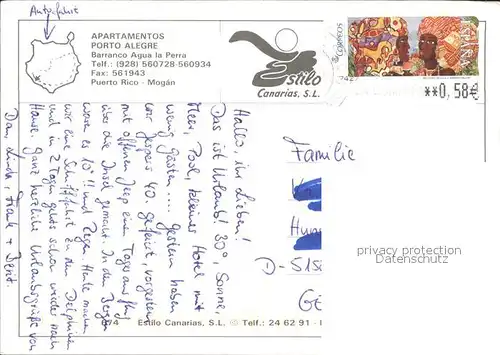 Autofahrt
APARTAMENTOS
PORTO ALEGRE
Barranco Agua la Perra
Telf.: (928) 560728-560934
Fax: 561943
Puerto Rico - Mogán
Estilo
Canarias, S.L.
ESPAÑA
**0,58€
Hallo ihr Lieben!
Das ist Urlaub! 30°, Sonne,
Meer, Pool, kleines Hotel mit
wenig Gästen.... Gestern haben
wir Jespers 40. gefeiert, vorgestern
mit offenen Jeep eine Tagesausflug
über die Insel gemacht. In den Bergen
waren es 10°!! und Regen. Heute machen
wir eine Schifffahrt zu den Delphinen
und in 2 Tagen gehts schon wieder nach
Hause. Ganz herzliche Urlaubsgrüße von
Dan, Linda, Frank + Berit.
Familie
D-515
74 Estilo Canarias, S.L. © Telf.: 24 62 91 -
privacy protection
Datenschutz